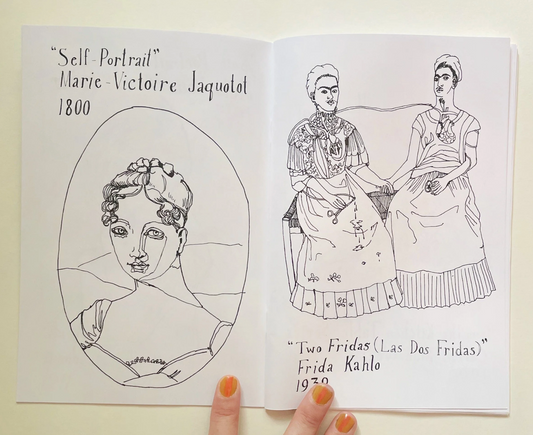 "Self-Portrait"
Marie-Victoire Jaquotot
1800
"Two Fridas (Las Dos Fridas)"
Frida Kahlo
1939